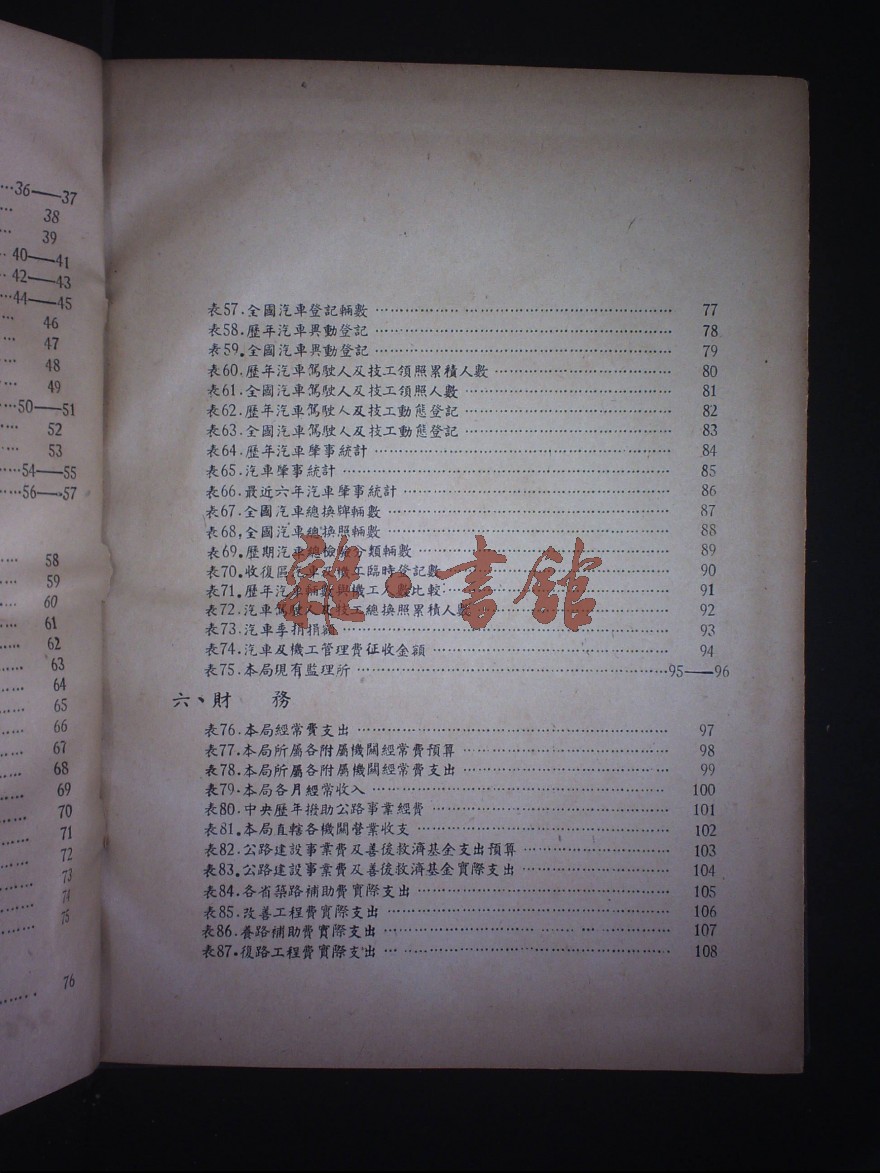 …36——37
38
39
40——41
42——43
…44——45
46
47
48
49
…50——51
52
53
…54——55
…56——57
58
59
60
61
62
63
64
65
66
67
68
69
70
71
72
73
74
75
76
表57.全國汽車登記輛數 …… 77
表58.歷年汽車異動登記 …… 78
表59.全國汽車異動登記 …… 79
表60.歷年汽車駕駛人及技工領照累積人數 …… 80
表61.全國汽車駕駛人及技工領照人數 …… 81
表62.歷年汽車駕駛人及技工動態登記 …… 82
表63.全國汽車駕駛人及技工動態登記 …… 83
表64.歷年汽車肇事統計 …… 84
表65.汽車肇事統計 …… 85
表66.最近六年汽車肇事統計 …… 86
表67.全國汽車總換牌輛數 …… 87
表68.全國汽車總換照輛數 …… 88
表69.歷期汽車總檢驗分類輛數 …… 89
表70.收復區汽車及機工臨時登記數 …… 90
表71.歷年汽車輛數與機工人數比較 …… 91
表72.汽車駕駛人及技工總換照累積人數 …… 92
表73.汽車季捐捐額 …… 93
表74.汽車及機工管理費征收金額 …… 94
表75.本局現有監理所 …… 95——96
六、財 務
表76.本局經常費支出 …… 97
表77.本局所屬各附屬機關經常費預算 …… 98
表78.本局所屬各附屬機關經常費支出 …… 99
表79.本局各月經常收入 …… 100
表80.中央歷年撥助公路事業經費 …… 101
表81.本局直轄各機關營業收支 …… 102
表82.公路建設事業費及善後救濟基金支出預算 …… 103
表83.公路建設事業費及善後救濟基金實際支出 …… 104
表84.各省築路補助費實際支出 …… 105
表85.改善工程費實際支出 …… 106
表86.養路補助費實際支出 …… 107
表87.復路工程費實際支出 …… 108
雜·書館